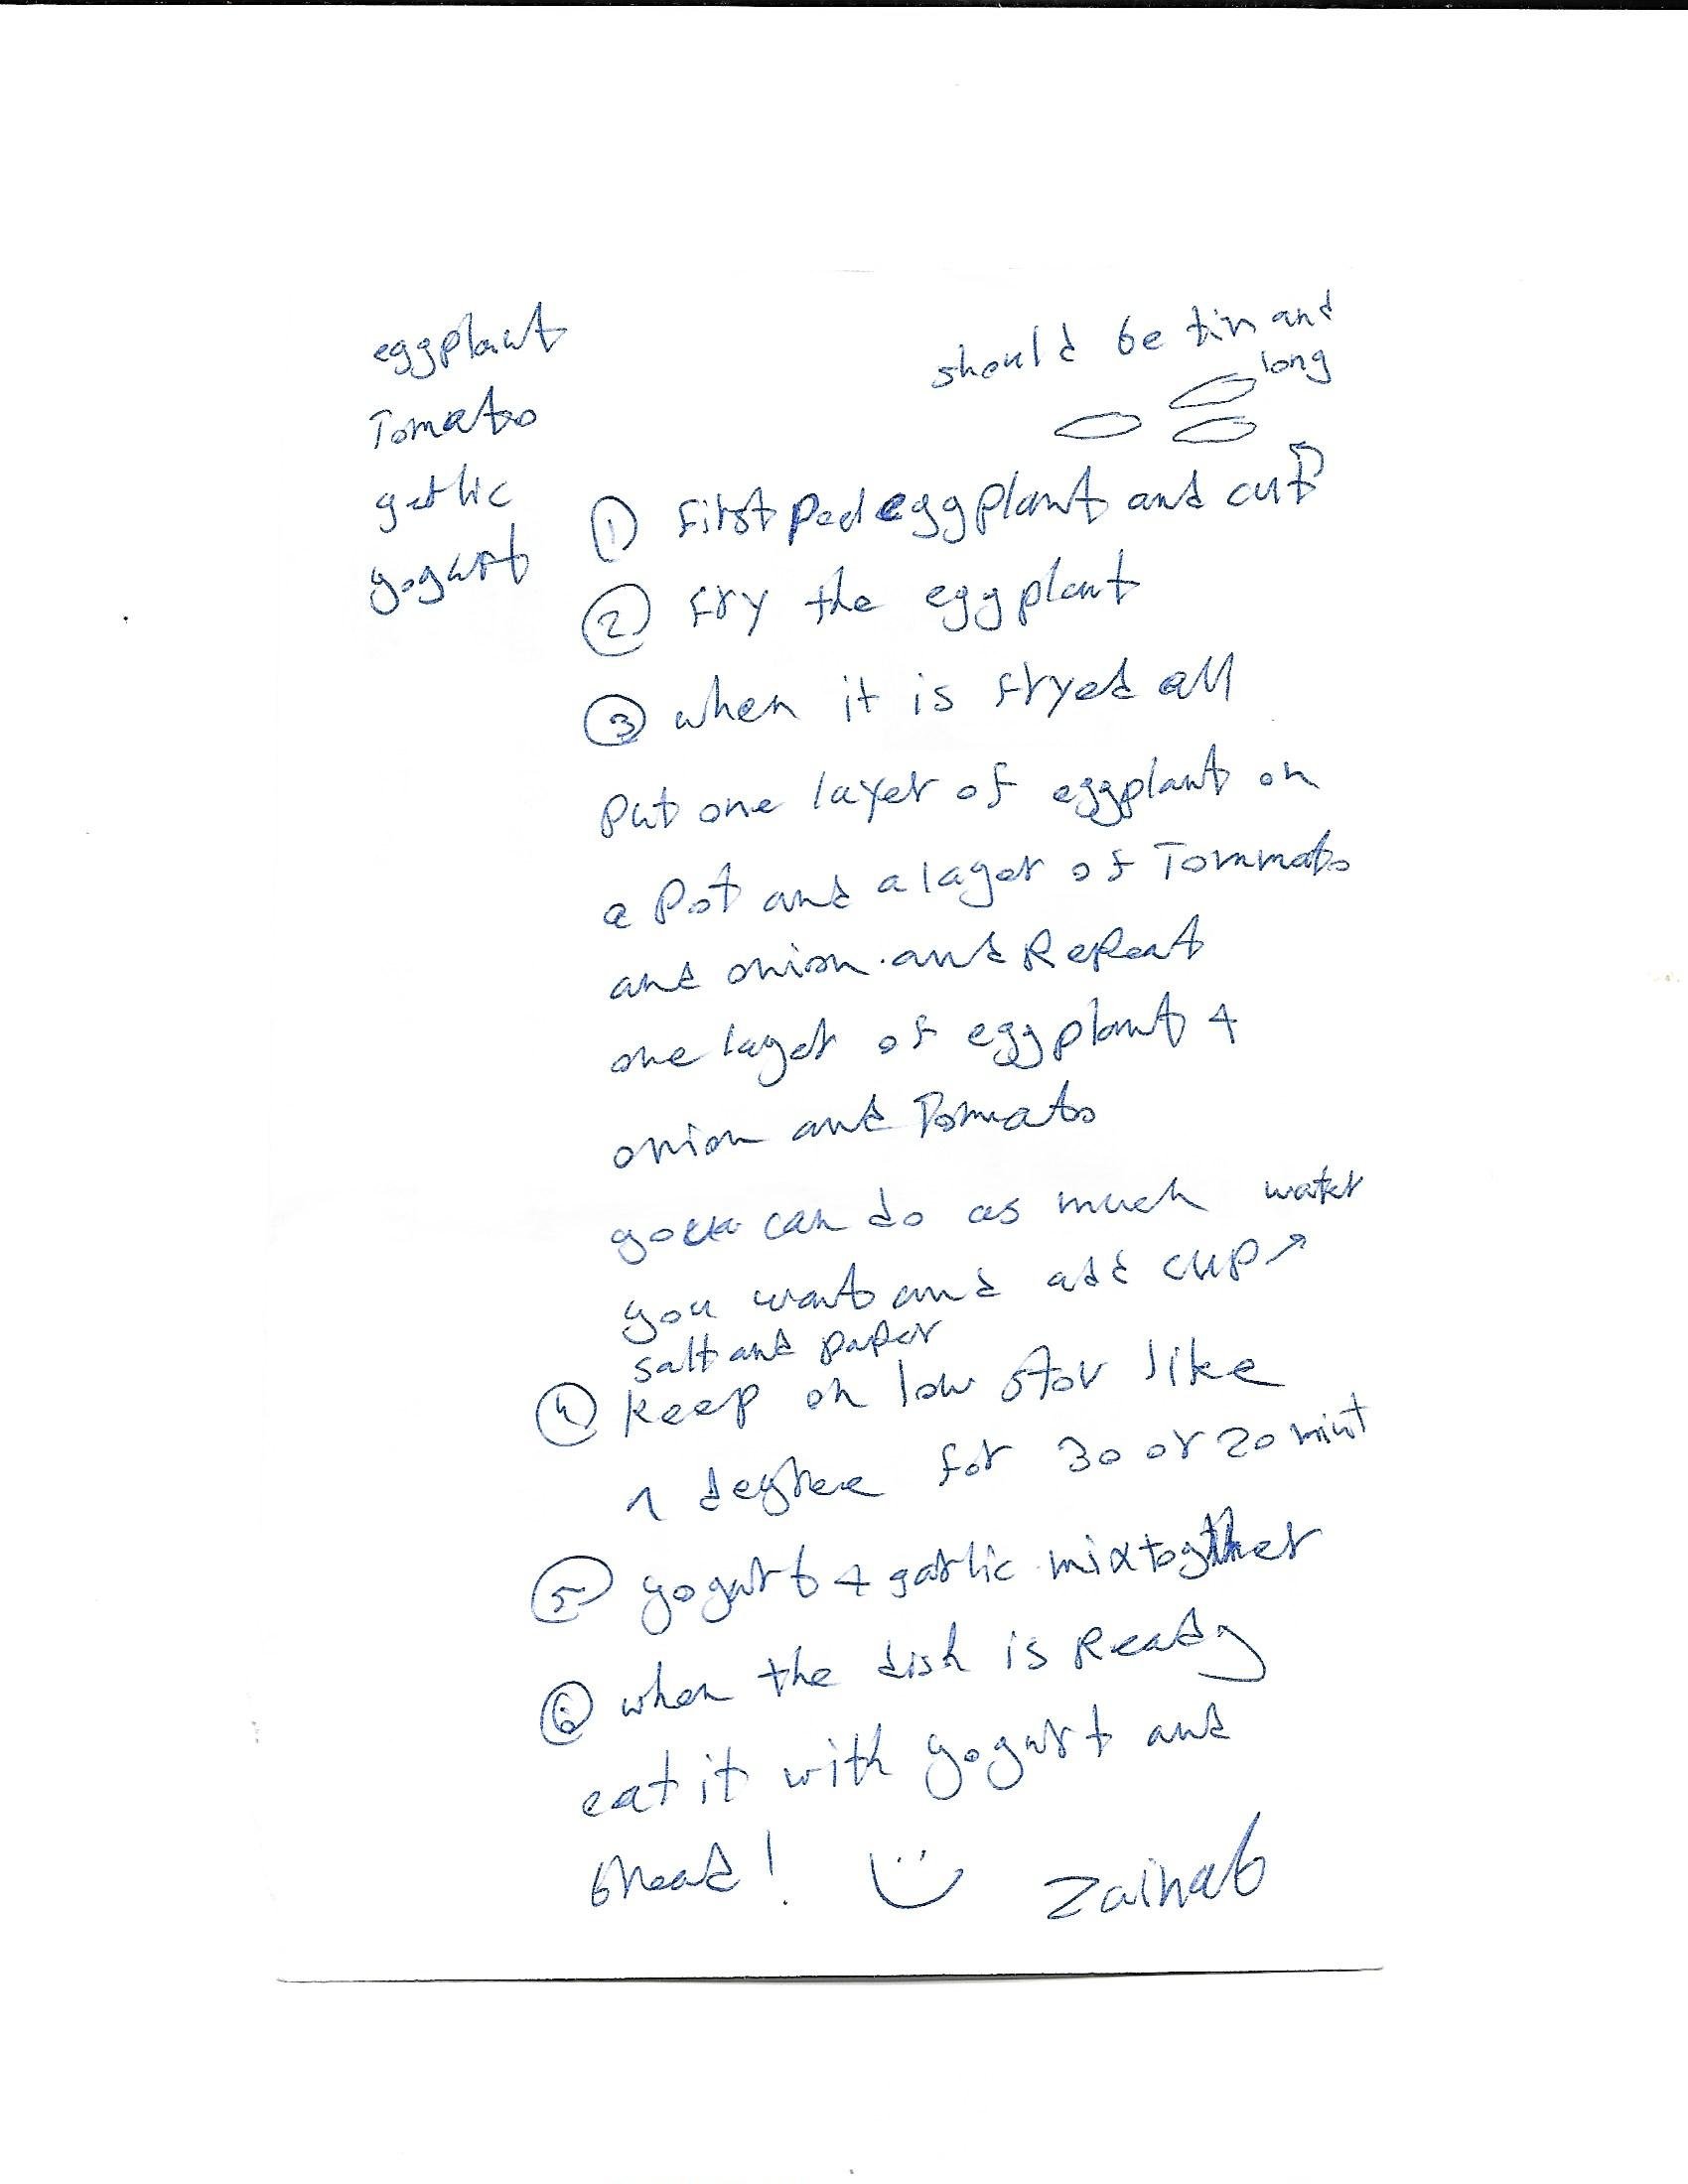 eggplant
Tomato
garlic
yogurt
should be tin and
long
① first peel eggplant and cut
② fry the eggplant
③ when it is fryed all
Put one layer of eggplant on
a Pot and a layer of Tommato
and onion. and Repeat
one layer of eggplant +
onion and Tomato
you can do as much water
you want and add cup ↗
salt and paper
④ keep on low stov like
1 degree for 30 or 20 mint
⑤ yogurt + garlic mix together
⑥ when the dish is Ready
eat it with yogurt and
bread! Zainab